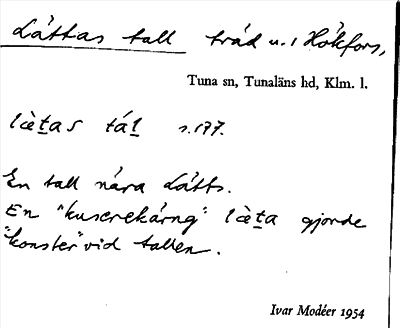 Låttas tall träd n.i Hökfors,
Tuna sn, Tunaläns hd, Klm. l.
lèt̲as tál̲ s.177.
En tall nära Låtts.
En "kuserekärng" lèt̲a gjorde
"konster" vid tallen.
Ivar Modéer 1954